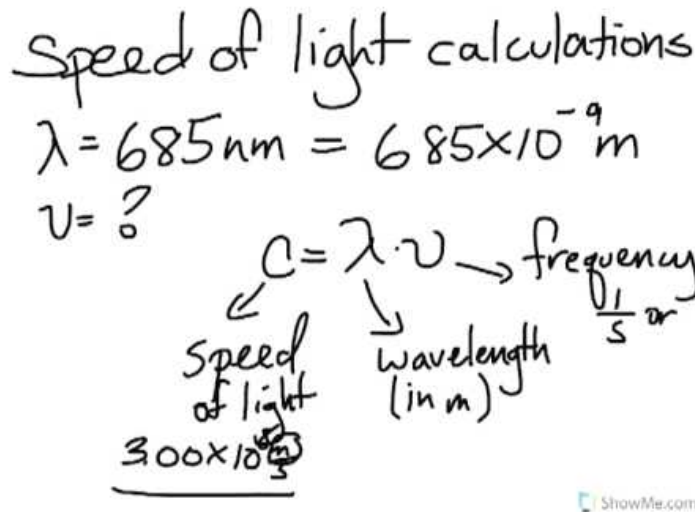 Speed of light calculations
λ = 685nm = 685×10⁻⁹m
ν = ?
C = λ·ν → frequency
1/s or
speed of light
3.00×10⁸ m/s
wavelength
(in m)
ShowMe.com